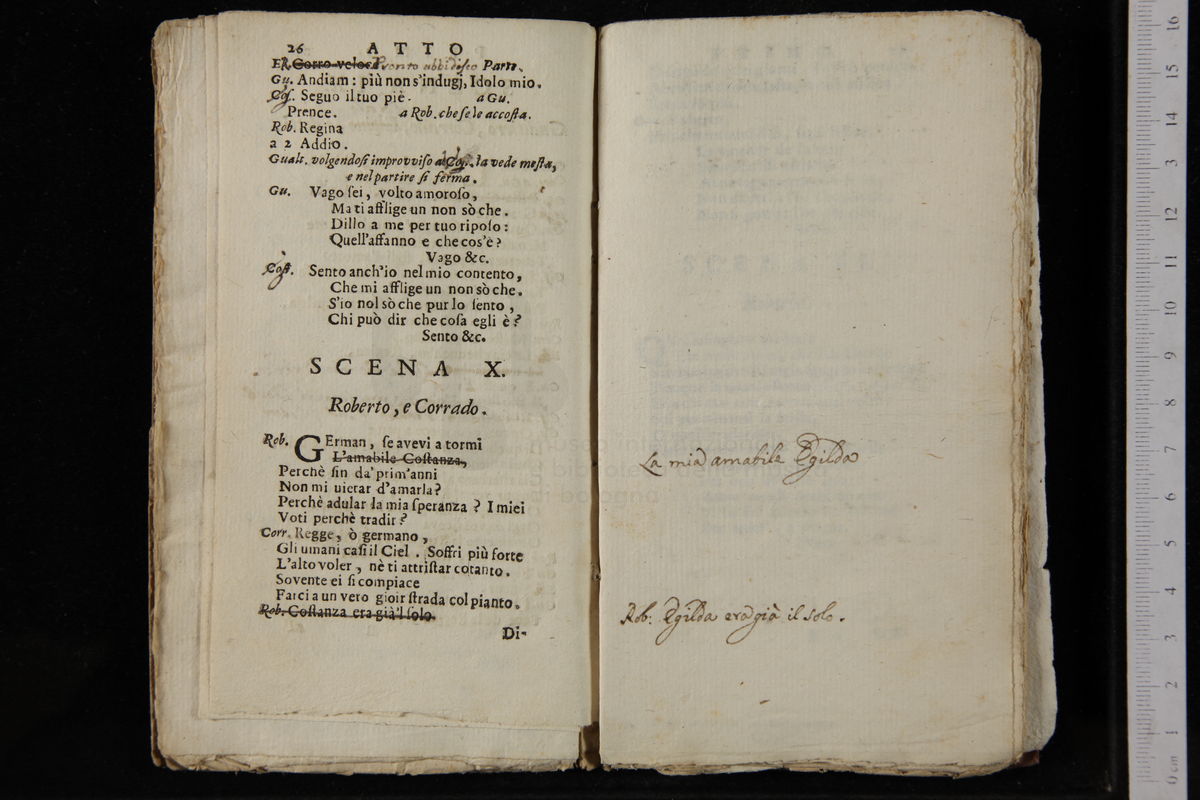 26 ATTO
Corro veloce Pronto ubbidisco Parte.
Gu. Andiam : più non s'indugj, Idolo mio.
Cos. Seguo il tuo piè. a Gu.
Prence. a Rob. che se le accosta.
Rob. Regina
a 2 Addio.
Gualt. volgendosi improvviso a Cos. la vede mesta,
e nel partire si ferma.
Gu. Vago sei, volto amoroso,
Ma ti afflige un non sò che.
Dillo a me per tuo riposo :
Quell'affanno e che cos'è ?
Vago &c.
Cost. Sento anch'io nel mio contento,
Che mi afflige un non sò che.
S'io nol sò che pur lo sento ,
Chi può dir che cosa egli è ?
Sento &c.
SCENA X.
Roberto, e Corrado.
Rob. GErman, se avevi a tormi
L'amabile Costanza,
Perchè sin da' prim'anni
Non mi vietar d'amarla ?
Perchè adular la mia speranza ? I miei
Voti perchè tradir ?
Corr. Regge, ò germano ,
Gli umani casi il Ciel . Soffri più forte
L'alto voler , nè ti attristar cotanto.
Sovente ei si compiace
Farci a un vero gioir strada col pianto.
Rob. Costanza era già'l solo.
Di-
La mia amabile Egilda
Rob: Egilda era già il solo.
0 cm 1 2 3 4 5 6 7 8 9 10 11 12 13 14 15 16